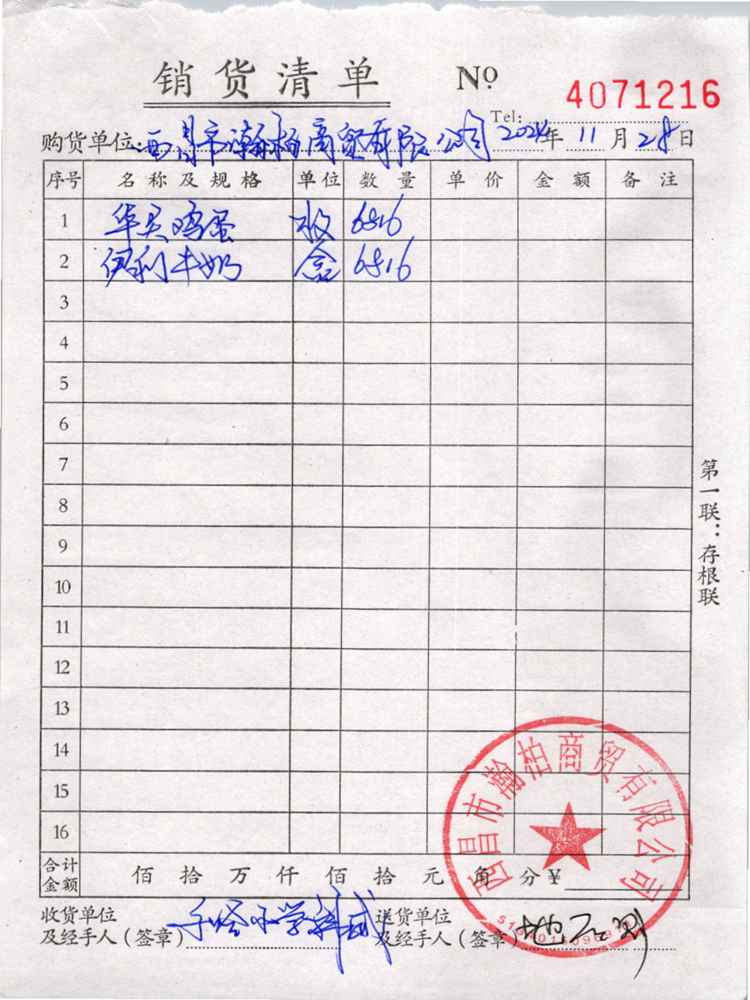 销货清单 № 4071216
Tel:
购货单位:西昌市瀚柏商贸有限公司 2024年11月28日
序号 名称及规格 单位 数量 单价 金额 备注
1 华贝鸡蛋 枚 6816
2 伊利牛奶 盒 6816
3
4
5
6
7
8
9
10
11
12
13
14
15
16
合计金额 佰拾万仟佰拾元角分¥
收货单位及经手人(签章) 送货单位及经手人(签章)
第一联:存根联
西昌市瀚柏商贸有限公司